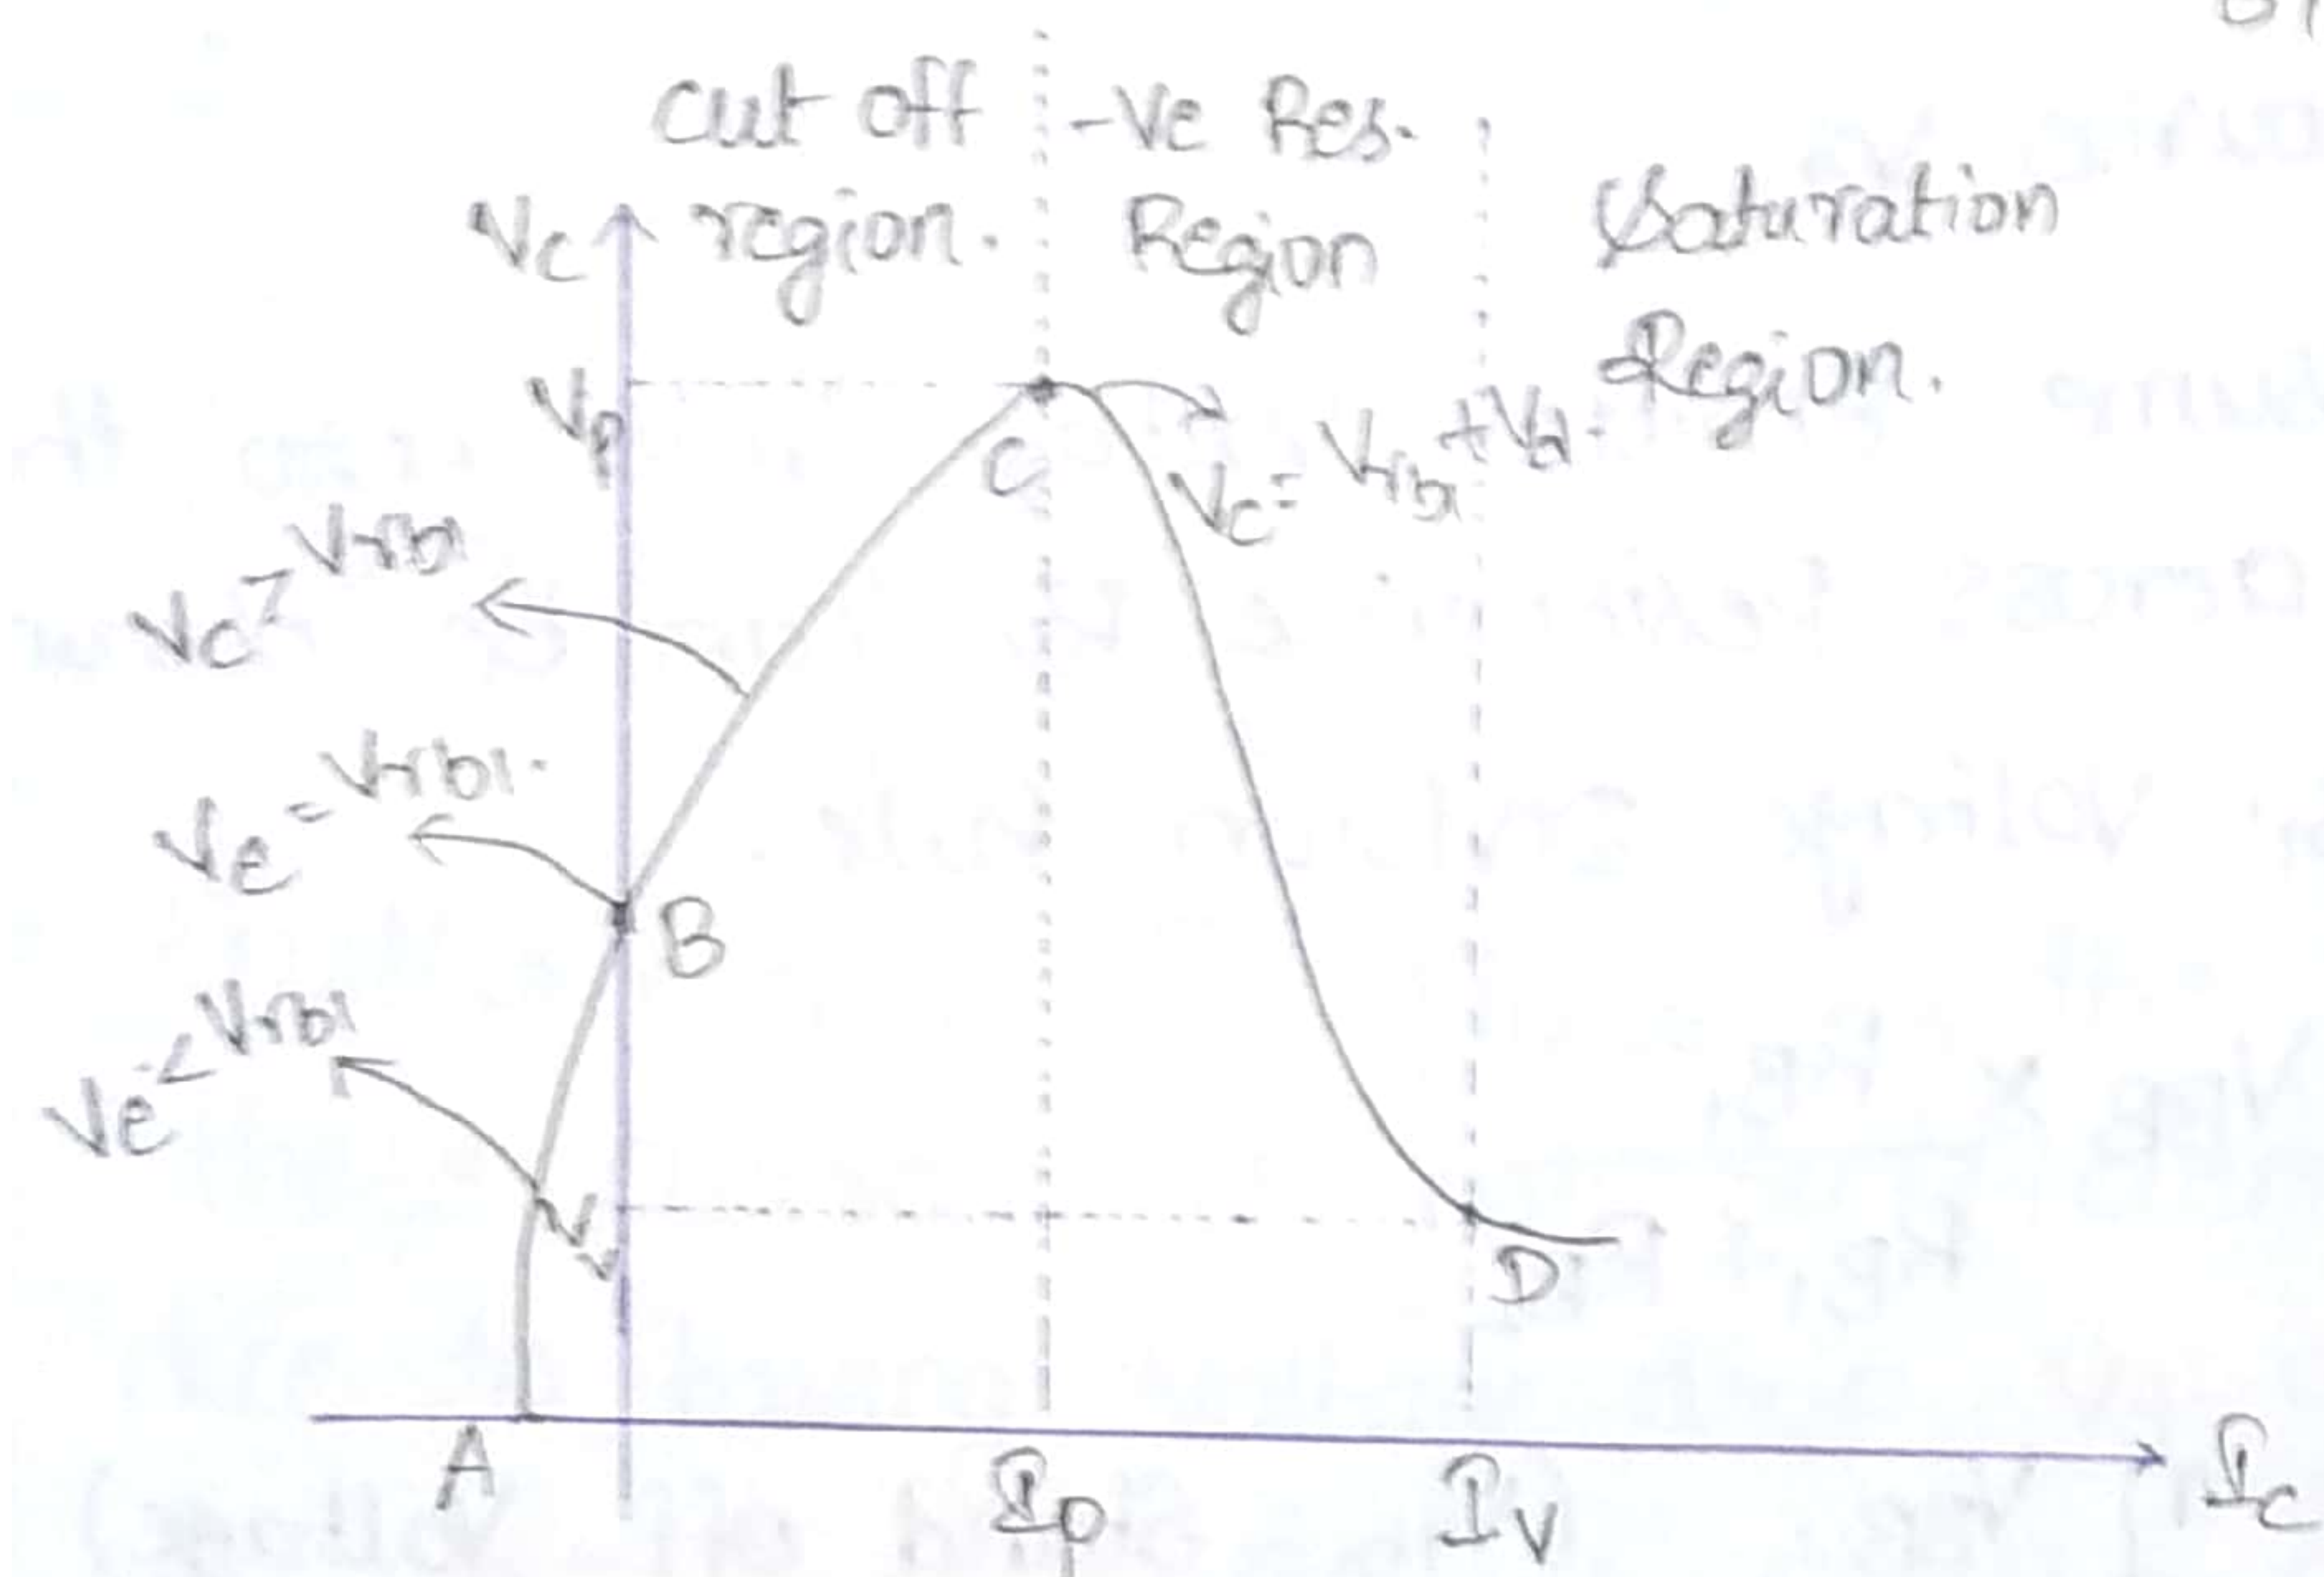 cut off
region.
-Ve Res.
Region
Saturation
Region.
Vc
Vp
C
Vc = Vrb1 + Vd.
Vc > Vrb1
Ve = Vrb1.
B
Ve < Vrb1
Vv
D
A
Ip
Iv
Ic